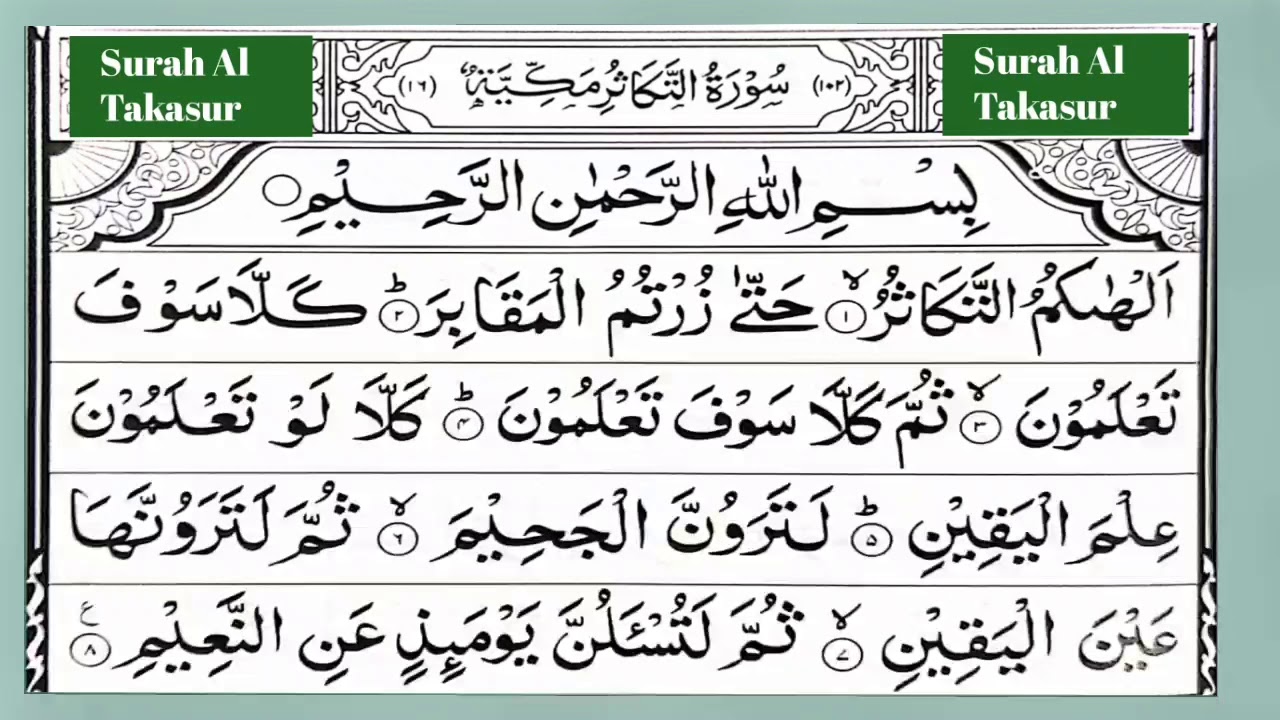 Surah Al
Takasur
(١٠٢) سُوْرَةُ التَّكَاثُرِ مَكِّيَّةٌ (١٦)
Surah Al
Takasur
بِسْمِ اللّٰهِ الرَّحْمٰنِ الرَّحِيْمِ ○
اَلْهٰىكُمُ التَّكَاثُرُ ۙ﴿١﴾ حَتّٰى زُرْتُمُ الْمَقَابِرَ ؕ﴿٢﴾ كَلَّا سَوْفَ
تَعْلَمُوْنَ ۙ﴿٣﴾ ثُمَّ كَلَّا سَوْفَ تَعْلَمُوْنَ ؕ﴿٤﴾ كَلَّا لَوْ تَعْلَمُوْنَ
عِلْمَ الْيَقِيْنِ ؕ﴿٥﴾ لَتَرَوُنَّ الْجَحِيْمَ ۙ﴿٦﴾ ثُمَّ لَتَرَوُنَّهَا
عَيْنَ الْيَقِيْنِ ۙ﴿٧﴾ ثُمَّ لَتُسْـَٔلُنَّ يَوْمَىِٕذٍ عَنِ النَّعِيْمِ ﴿٨﴾ ع